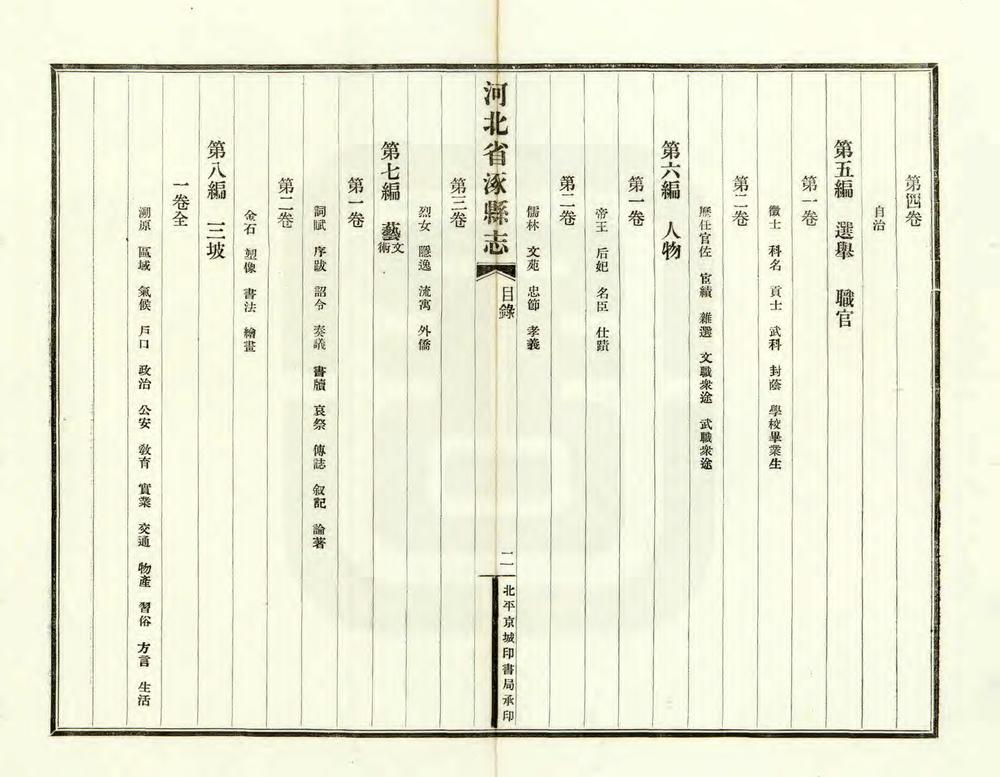 第四卷
自治
第五編 選舉 職官
第一卷
徵士 科名 貢士 武科 封蔭 學校畢業生
第二卷
歷任官佐 宦績 雜選 文職衆途 武職衆途
第六編 人物
第一卷
帝王 后妃 名臣 仕蹟
第二卷
儒林 文苑 忠節 孝義
河北省涿縣志 目錄 二 北平京城印書局承印
第三卷
烈女 隱逸 流寓 外僑
第七編 藝文術
第一卷
詞賦 序跋 詔令 奏議 書牘 哀祭 傳誌 叙記 論著
第二卷
金石 塑像 書法 繪畫
第八編 三坡
一卷全
溯原 區域 氣候 戶口 政治 公安 敎育 實業 交通 物產 習俗 方言 生活